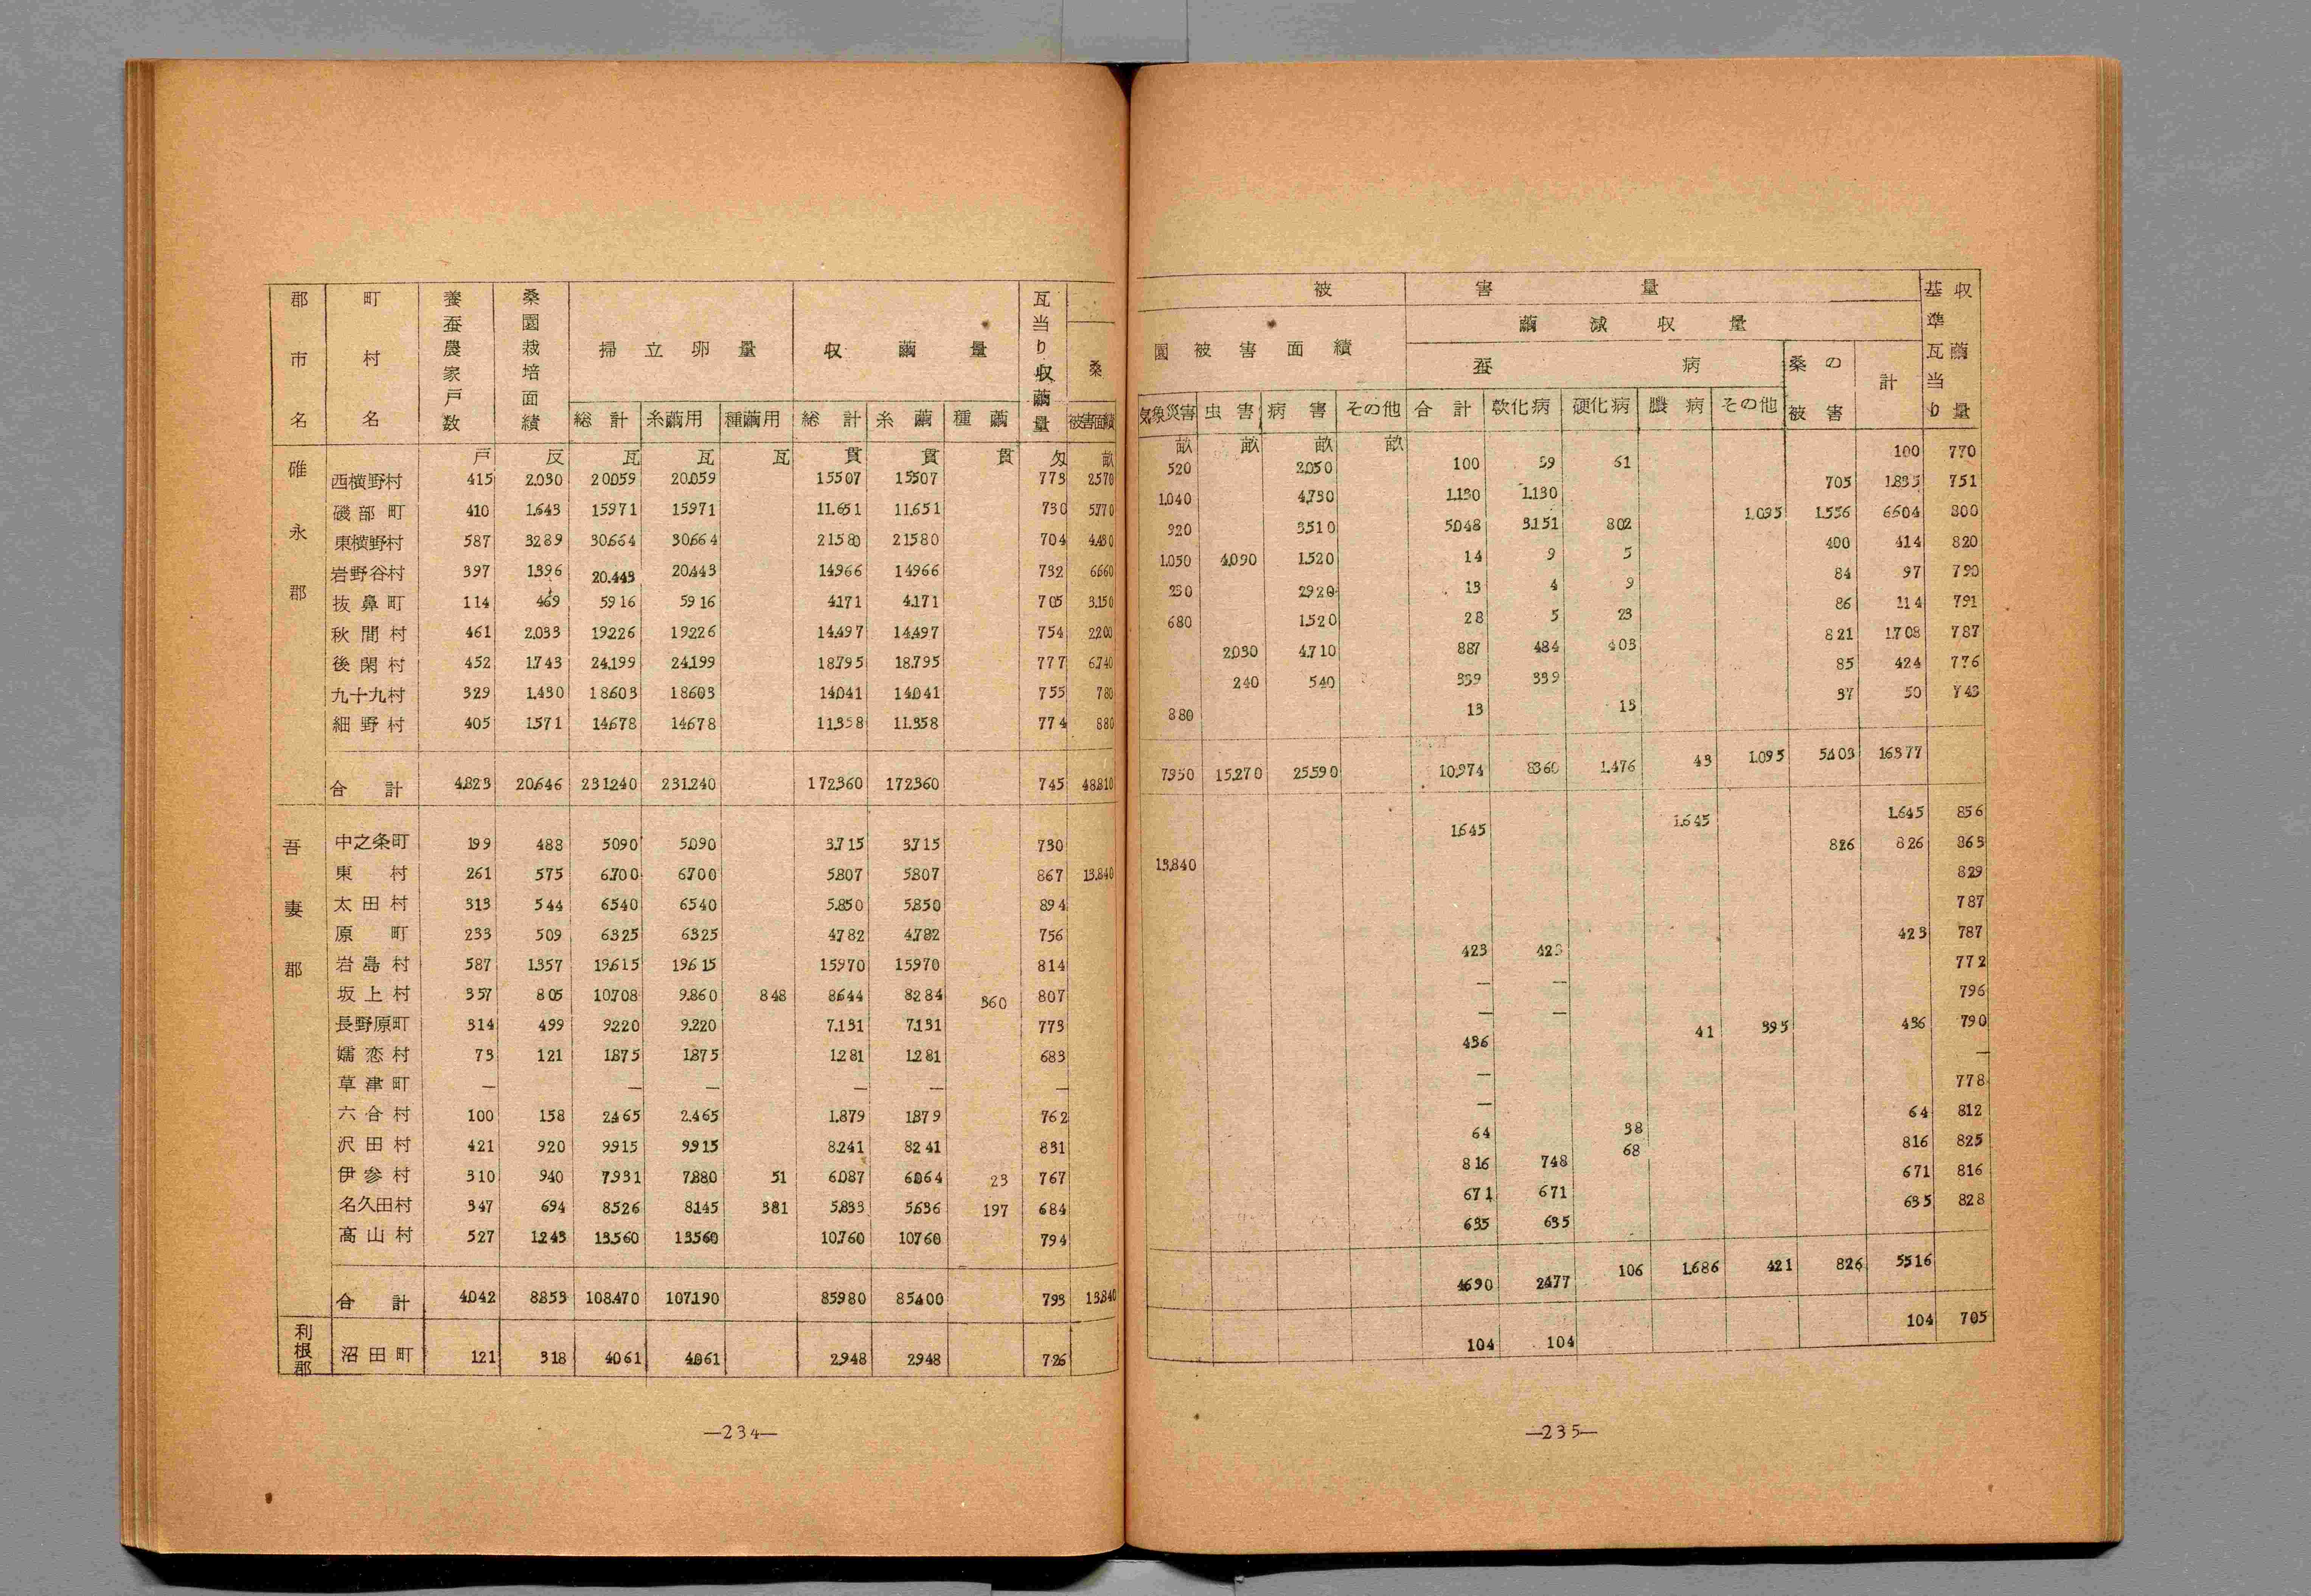 郡市名 町村名 養蚕農家戸数 桑園栽培面績 掃立卵量 収繭量 瓦当り収繭量 桑
総計 糸繭用 種繭用 総計 糸繭 種繭 被害面績
戸 反 瓦 瓦 瓦 貫 貫 貫 匁 畝
碓永郡
西横野村 415 2.030 20059 20.059 15507 15507 773 2570
磯部町 410 1.643 15971 15971 11.651 11.651 730 5770
東横野村 587 3289 30.664 30.664 21580 21580 704 4.430
岩野谷村 397 1.396 20.443 20.443 14.966 14966 732 6660
抜鼻町 114 469 5916 5916 4171 4.171 705 3.150
秋間村 461 2.033 19226 19226 14.497 14.497 754 2200
後閑村 452 1.743 24.199 24.199 18.795 18.795 777 6.740
九十九村 329 1.430 18.603 18603 14.041 14.041 755 780
細野村 405 1.571 14.678 14.678 11.358 11.358 774 880
合計 4.823 20.646 231.240 231.240 172.360 172.360 745 48.810
吾妻郡
中之条町 199 488 5090 5.090 3.715 3.715 730
東村 261 575 6.700 6.700 5.807 5.807 867 13.840
太田村 313 544 6540 6540 5.850 5.850 894
原町 233 509 6325 6325 4.782 4.782 756
岩島村 587 1.357 19.615 19.615 15970 15970 814
坂上村 357 805 10.708 9.860 848 8.644 8284 360 807
長野原町 314 499 9.220 9.220 7.131 7.131 773
嬬恋村 73 121 1.875 1.875 1.281 1.281 683
草津町 — — — — — —
六合村 100 158 2.465 2.465 1.879 1.879 762
沢田村 421 920 9.915 9.915 8.241 8241 831
伊参村 310 940 7.931 7.880 51 6.087 6.064 23 767
名久田村 347 694 8.526 8.145 381 5.833 5.636 197 684
高山村 527 1.243 13.560 13.560 10.760 10.760 794
合計 4.042 8.853 108.470 107.190 85.980 85.400 793 13.840
利根郡 沼田町 121 318 4.061 4.061 2.948 2.948 726
—234—
被害量 基準瓦当り収繭量
園被害面績 繭減収量
蚕病 桑の被害 計
気象災害 虫害 病害 その他 合計 軟化病 硬化病 膿病 その他
畝 畝 畝 畝
520 2.050 100 39 61 100 770
1.040 4.730 1.130 1.130 705 1.835 751
920 3.510 5.048 3.151 802 1.095 1.556 6.604 800
1.050 4.090 1.520 14 9 5 400 414 820
230 2.920 13 4 9 84 97 790
680 1.520 28 5 23 86 114 791
2.030 4.710 887 484 403 821 1.708 787
240 540 339 339 85 424 776
880 13 13 37 50 743
7.950 15.270 25.590 10.974 8360 1.476 43 1.095 5.403 16.377
1.645 1.645 1.645 856
13.840 826 826 863
829
787
423 423 423 787
— — 772
— — 796
436 41 395 436 790
— —
— 778
64 38 64 812
816 748 68 816 825
671 671 671 816
635 635 635 828
4.690 2.477 106 1.686 421 826 5.516
104 104 104 705
—235—